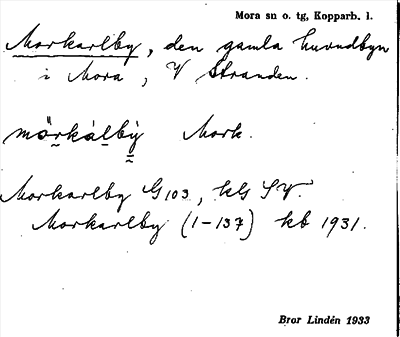 Mora sn o. tg, Kopparb. l.
Morkarlby, den gamla huvudbyn
i Mora, V Stranden.
mörkálbỳ Mork.
Morkarlby G 103, klG SV.
Morkarlby (1-137) kb 1931.
Bror Lindén 1933